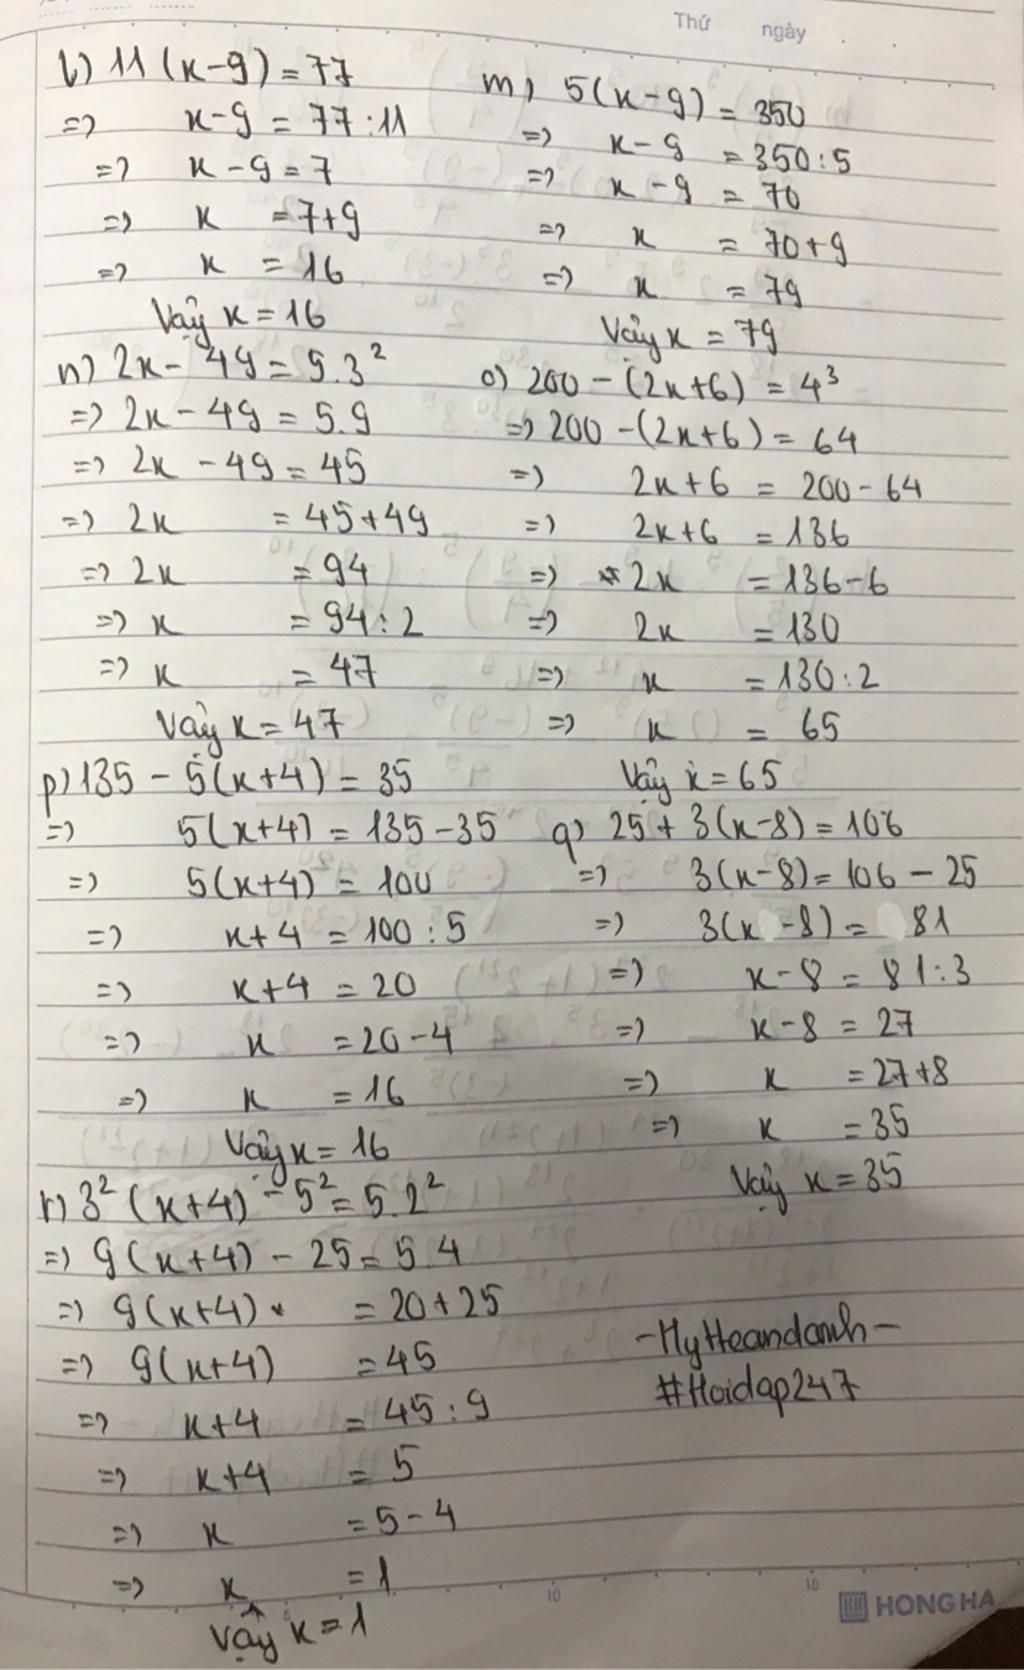 Thứ ngày
l) 11(x-9) = 77
=> x-9 = 77:11
=> x-9 = 7
=> x = 7+9
=> x = 16
Vậy x = 16
m) 5(x-9) = 350
=> x-9 = 350:5
=> x-9 = 70
=> x = 70+9
=> x = 79
Vậy x = 79
n) 2x - 49 = 5.3²
=> 2x - 49 = 5.9
=> 2x - 49 = 45
=> 2x = 45+49
=> 2x = 94
=> x = 94:2
=> x = 47
Vậy x = 47
o) 200 - (2x+6) = 4³
=> 200 - (2x+6) = 64
=> 2x+6 = 200-64
=> 2x+6 = 136
=> 2x = 136-6
=> 2x = 130
=> x = 130:2
=> x = 65
Vậy x = 65
p) 135 - 5(x+4) = 35
=> 5(x+4) = 135-35
=> 5(x+4) = 100
=> x+4 = 100:5
=> x+4 = 20
=> x = 20-4
=> x = 16
Vậy x = 16
q) 25 + 3(x-8) = 106
=> 3(x-8) = 106 - 25
=> 3(x-8) = 81
=> x-8 = 81:3
=> x-8 = 27
=> x = 27+8
=> x = 35
Vậy x = 35
r) 3²(x+4) - 5² = 5.2²
=> 9(x+4) - 25 = 5.4
=> 9(x+4) = 20+25
=> 9(x+4) = 45
=> x+4 = 45:9
=> x+4 = 5
=> x = 5-4
=> x = 1
Vậy x = 1
-MyHeandanh-
#Hoidap247
5 10 15
HONG HA